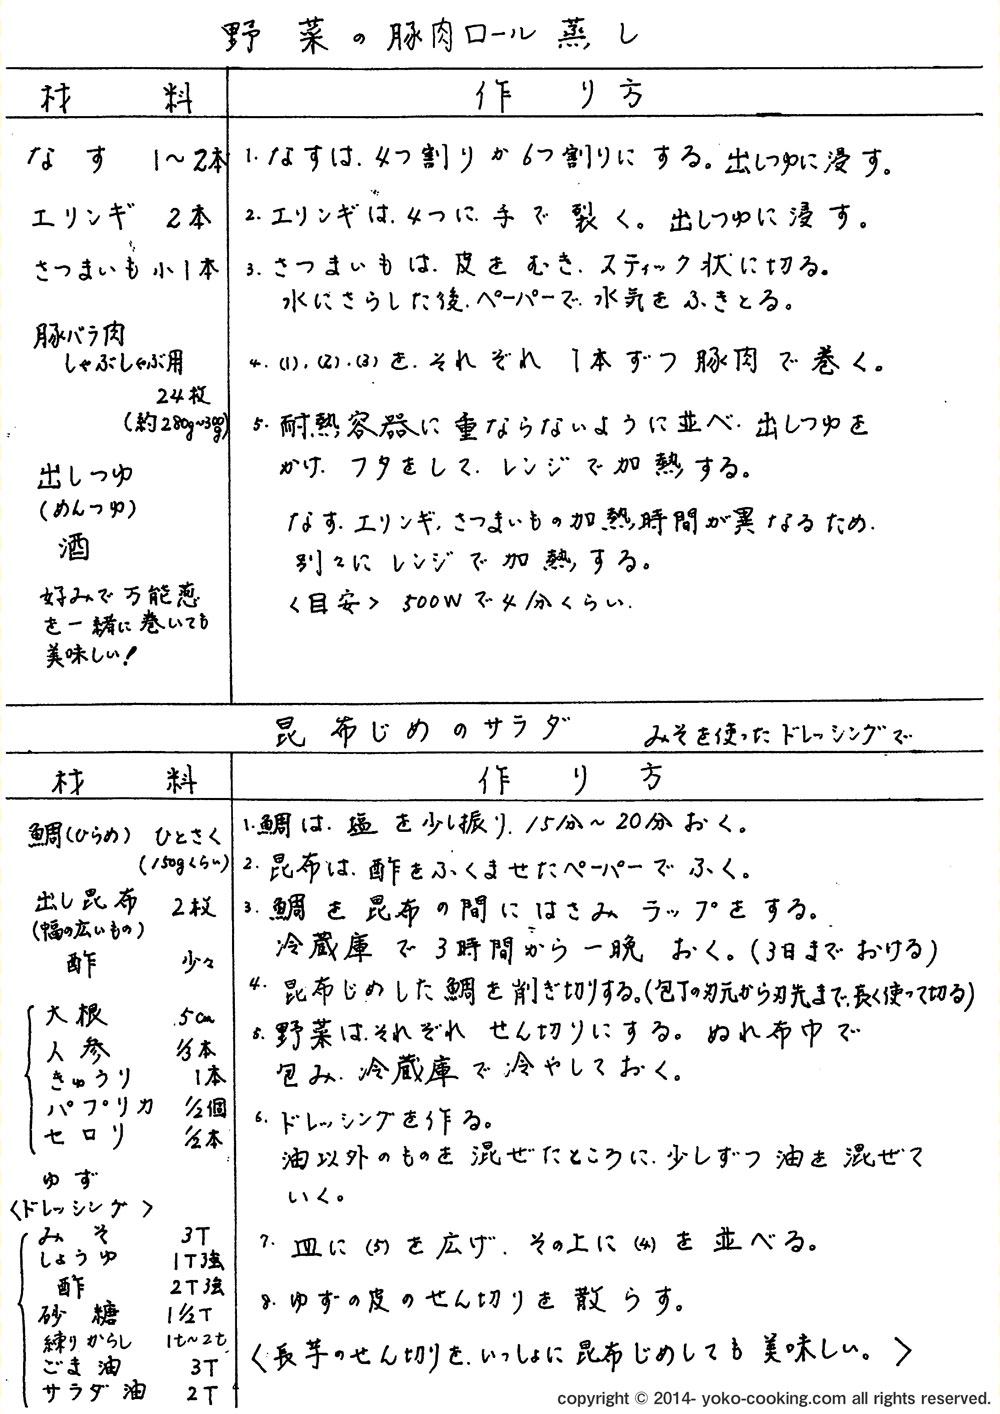 野菜の豚肉ロール蒸し
材料
作り方
なす 1～2本
エリンギ 2本
さつまいも 小1本
豚バラ肉
しゃぶしゃぶ用
24枚
(約280g～300g)
出しつゆ
(めんつゆ)
酒
好みで万能葱
を一緒に巻いても
美味しい!
1. なすは、4つ割りか6つ割りにする。出しつゆに浸す。
2. エリンギは、4つに、手で裂く。出しつゆに浸す。
3. さつまいもは、皮をむき、スティック状に切る。
水にさらした後、ペーパーで、水気をふきとる。
4. (1)、(2)、(3)を、それぞれ 1本ずつ豚肉で巻く。
5. 耐熱容器に重ならないように並べ、出しつゆを
かけ、フタをして、レンジで加熱する。
なす、エリンギ、さつまいもの加熱時間が異なるため、
別々にレンジで加熱する。
<目安> 500Wで4分くらい。
昆布じめのサラダ みそを使ったドレッシングで
材料
作り方
鯛(ひらめ) ひとさく
(150gくらい)
出し昆布 2枚
(幅の広いもの)
酢 少々
大根 5cm
人参 1/3本
きゅうり 1本
パプリカ 1/2個
セロリ 1/2本
ゆず
<ドレッシング>
みそ 3T
しょうゆ 1T強
酢 2T強
砂糖 1 1/2T
練りからし 1t～2t
ごま油 3T
サラダ油 2T
1. 鯛は、塩を少し振り、15分～20分おく。
2. 昆布は、酢をふくませたペーパーでふく。
3. 鯛を昆布の間にはさみ ラップをする。
冷蔵庫で3時間から一晩 おく。(3日までおける)
4. 昆布じめした鯛を削ぎ切りする。(包丁の刃元から刃先まで、長く使って切る)
5. 野菜は、それぞれ せん切りにする。ぬれ布巾で
包み、冷蔵庫で冷やしておく。
6. ドレッシングを作る。
油以外のものを混ぜたところに、少しずつ油を混ぜて
いく。
7. 皿に(5)を広げ、その上に(4)を並べる。
8. ゆずの皮のせん切りを散らす。
<長芋のせん切りを、いっしょに昆布じめしても美味しい。>
copyright © 2014- yoko-cooking.com all rights reserved.